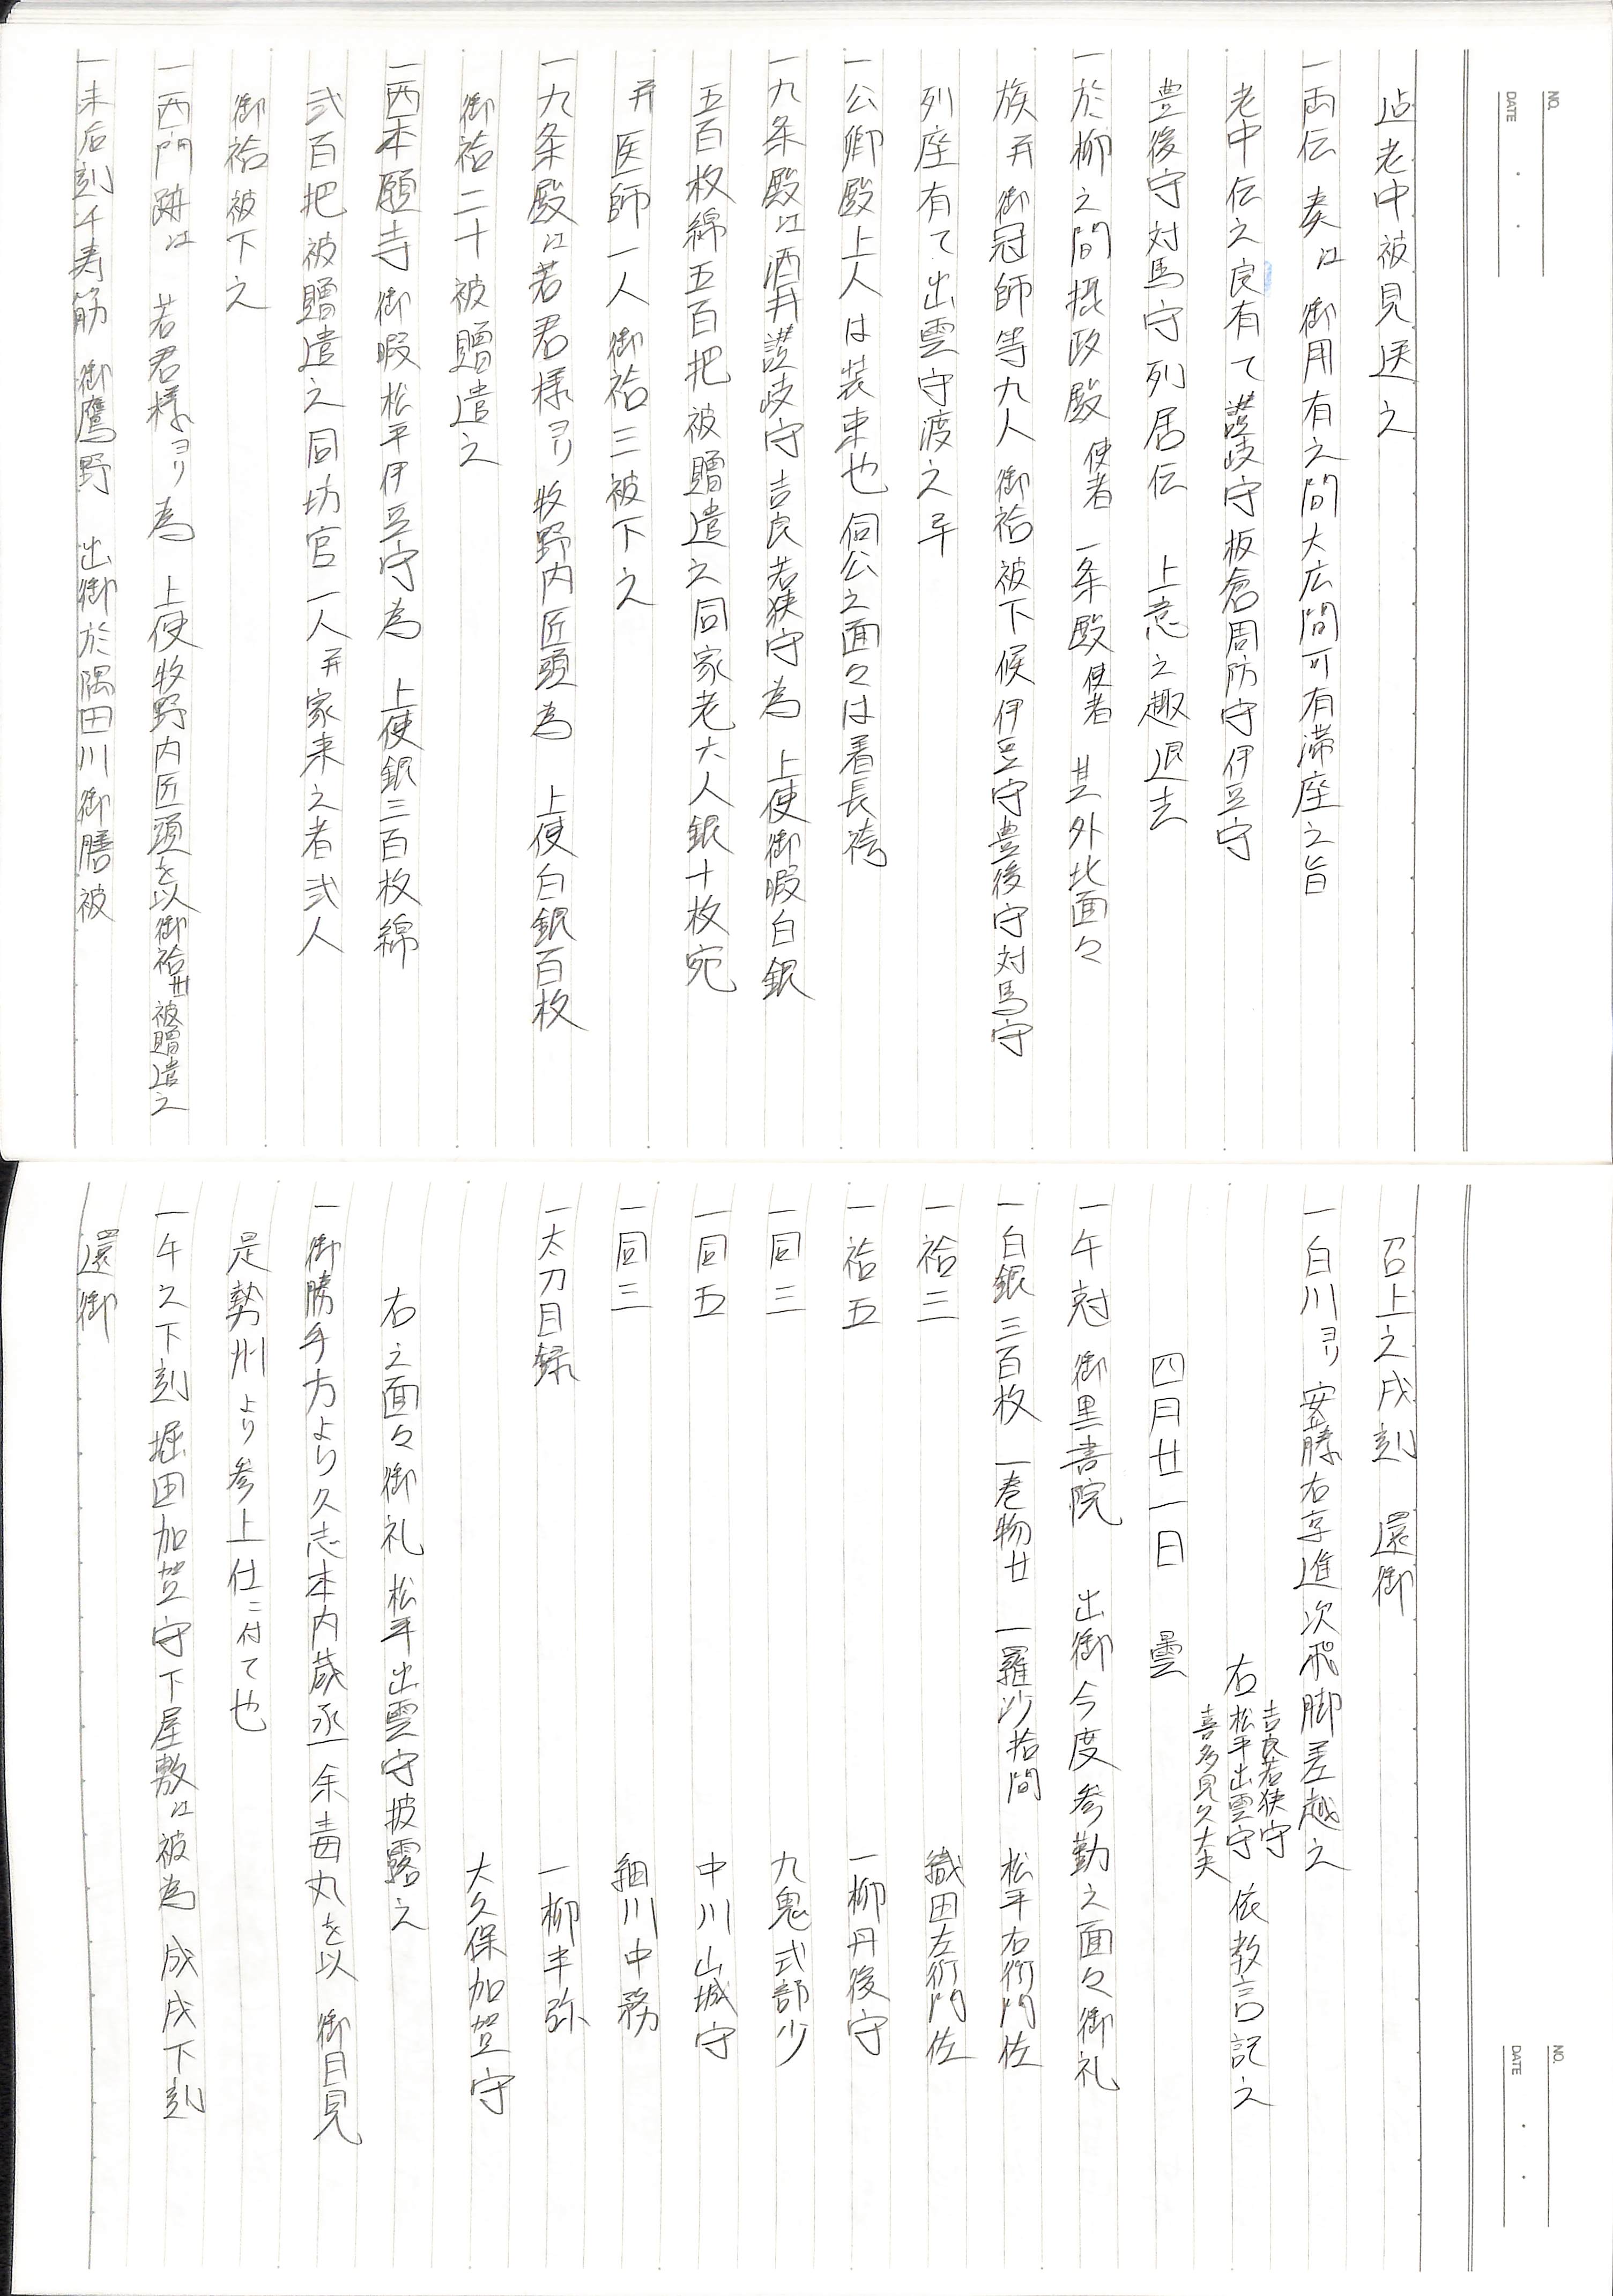 NO.
DATE
迠老中被見送之
一両伝奏江 御用有之間大広間可有滞座之旨
老中伝之良有て讃岐守板倉周防守伊豆守
豊後守対馬守列居伝 上意之趣退去
一於柳之間摂政殿使者 一条殿使者 其外北面々
族并御冠師等九人 御袷被下候伊豆守豊後守対馬守
列座有て出雲守渡之
一公卿殿上人は装束也伺公之面々は着長袴
一九条殿江酒井讃岐守吉良若狭守為 上使御暇白銀
五百枚綿五百把被贈遣之同家老六人銀十枚宛
并医師一人御袷三被下之
一九条殿江若君様ヨリ牧野内匠頭為 上使白銀百枚
御袷二十被贈遣之
一西本願寺御暇松平伊豆守為 上使銀三百枚綿
弐百把被贈遣之同坊官一人并家来之者弐人
御袷被下之
一西門跡江 若君様ヨリ為 上使牧野内匠頭を以御袷卅被贈遣之
一未后刻千寿筋 御鷹野 出御於隅田川御膳被
NO.
DATE
召上之戌刻 還御
一白川ヨリ 安藤右京進次飛脚差越之
吉良若狭守
右松平出雲守 依教言記之
喜多見久大夫
四月廿一日 曇
一午剋 御黒書院 出御今度参勤之面々御礼
一白銀三百枚 一巻物廿 一羅沙拾間 松平右衛門佐
一袷三 織田左衛門佐
一袷五 一柳丹後守
一同三 九鬼式部少
一同五 中川山城守
一同三 細川中務
一太刀目録 一柳半弥
大久保加賀守
右之面々御礼松平出雲守披露之
一御勝手方より久志本内蔵丞一余毒丸を以 御目見
是勢州より参上仕ニ付て也
一午之下刻堀田加賀守下屋敷江被為 成戌下刻
還御